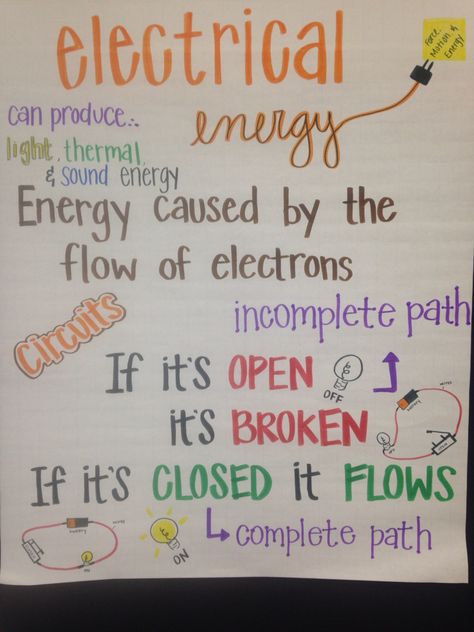 electrical
Force,
Motion &
Energy
energy
can produce...
light, thermal,
& sound energy
Energy caused by the
flow of electrons
Circuits
incomplete path
If it's OPEN
OFF
it's BROKEN
If it's CLOSED it FLOWS
ON
complete path